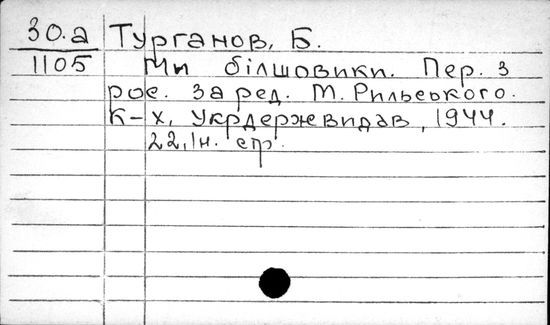 30.а Турганов, Б.
1105 Ми білшовики. Пер. з
рос. За ред. М. Рильського.
К-Х, Укрдержвидав, 1944.
22, ін. стр.